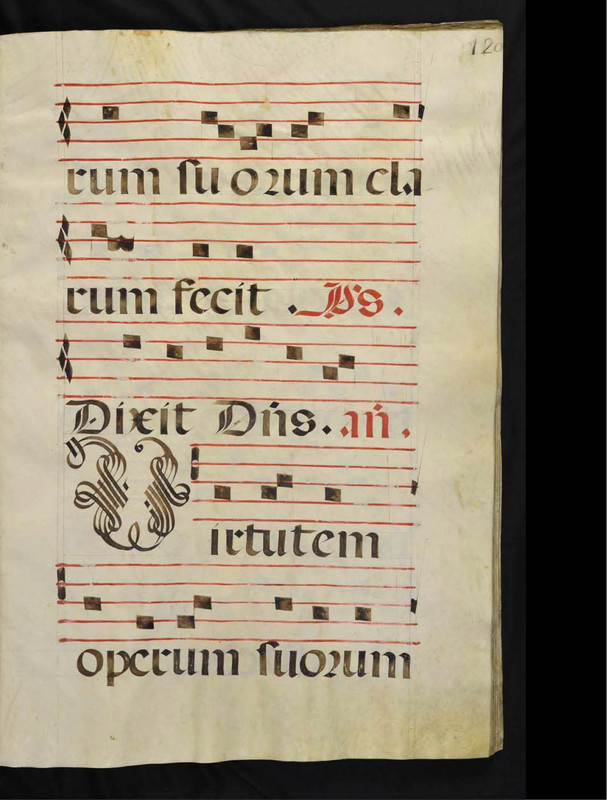 120
rum ſu orum cla
rum fecit . Ps .
Dixit Dñs. añ.
Virtutem
operum ſuorum